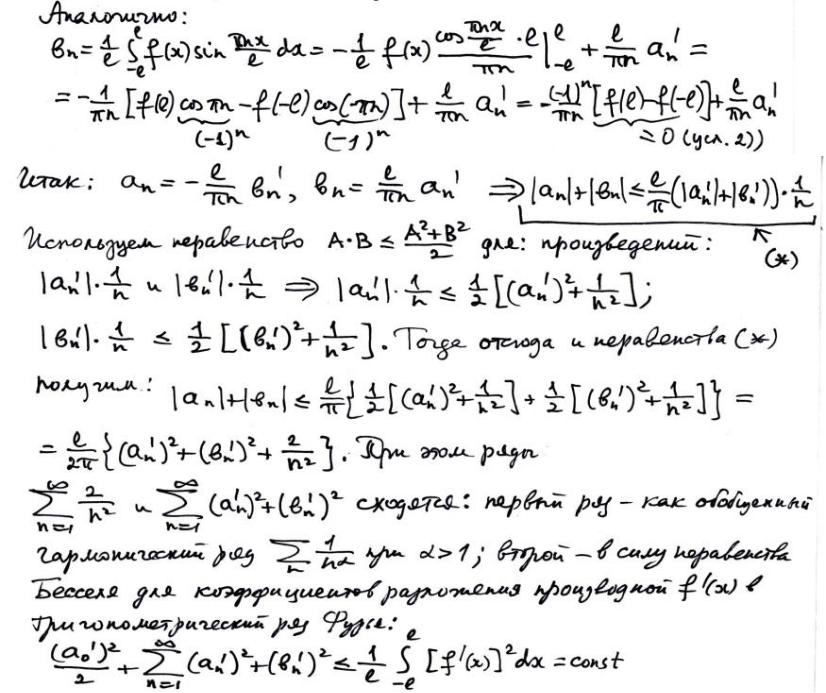 Аналогично:
вₙ = 1/e ∫₋ₑᵉ f(x) sin πnx/e dx = - 1/e f(x) cos πnx/e · e / πn |₋ₑᵉ + e/πn aₙ' =
= - 1/πn [f(e) cos πn - f(-e) cos(-πn)] + e/πn aₙ' = - (-1)ⁿ/πn [f(e) - f(-e)] + e/πn aₙ'
(-1)ⁿ (-1)ⁿ = 0 (усл. 2))
Итак: aₙ = - e/πn вₙ', вₙ = e/πn aₙ' ⇒ |aₙ| + |вₙ| ≤ e/π (|aₙ'| + |вₙ'|)) · 1/n
Используем неравенство A·B ≤ (A² + B²)/2 для: произведений: (*)
|aₙ'| · 1/n и |вₙ'| · 1/n ⇒ |aₙ'| · 1/n ≤ 1/2 [(aₙ')² + 1/n²];
|вₙ'| · 1/n ≤ 1/2 [(вₙ')² + 1/n²]. Тогда отсюда и неравенства (*)
получим: |aₙ| + |вₙ| ≤ e/π {1/2 [(aₙ')² + 1/n²] + 1/2 [(вₙ')² + 1/n²]} =
= e/2π {(aₙ')² + (вₙ')² + 2/n²}. При этом ряды
∑ₙ₌₁^∞ 2/n² и ∑ₙ₌₁^∞ (aₙ')² + (вₙ')² сходятся: первый ряд - как обобщенный
гармонический ряд ∑ₙ 1/n^α при α > 1; второй - в силу неравенства
Бесселя для коэффициентов разложения производной f'(x) в
тригонометрический ряд Фурье:
(a₀')²/2 + ∑ₙ₌₁^∞ (aₙ')² + (вₙ')² ≤ 1/e ∫₋ₑᵉ [f'(x)]² dx = const